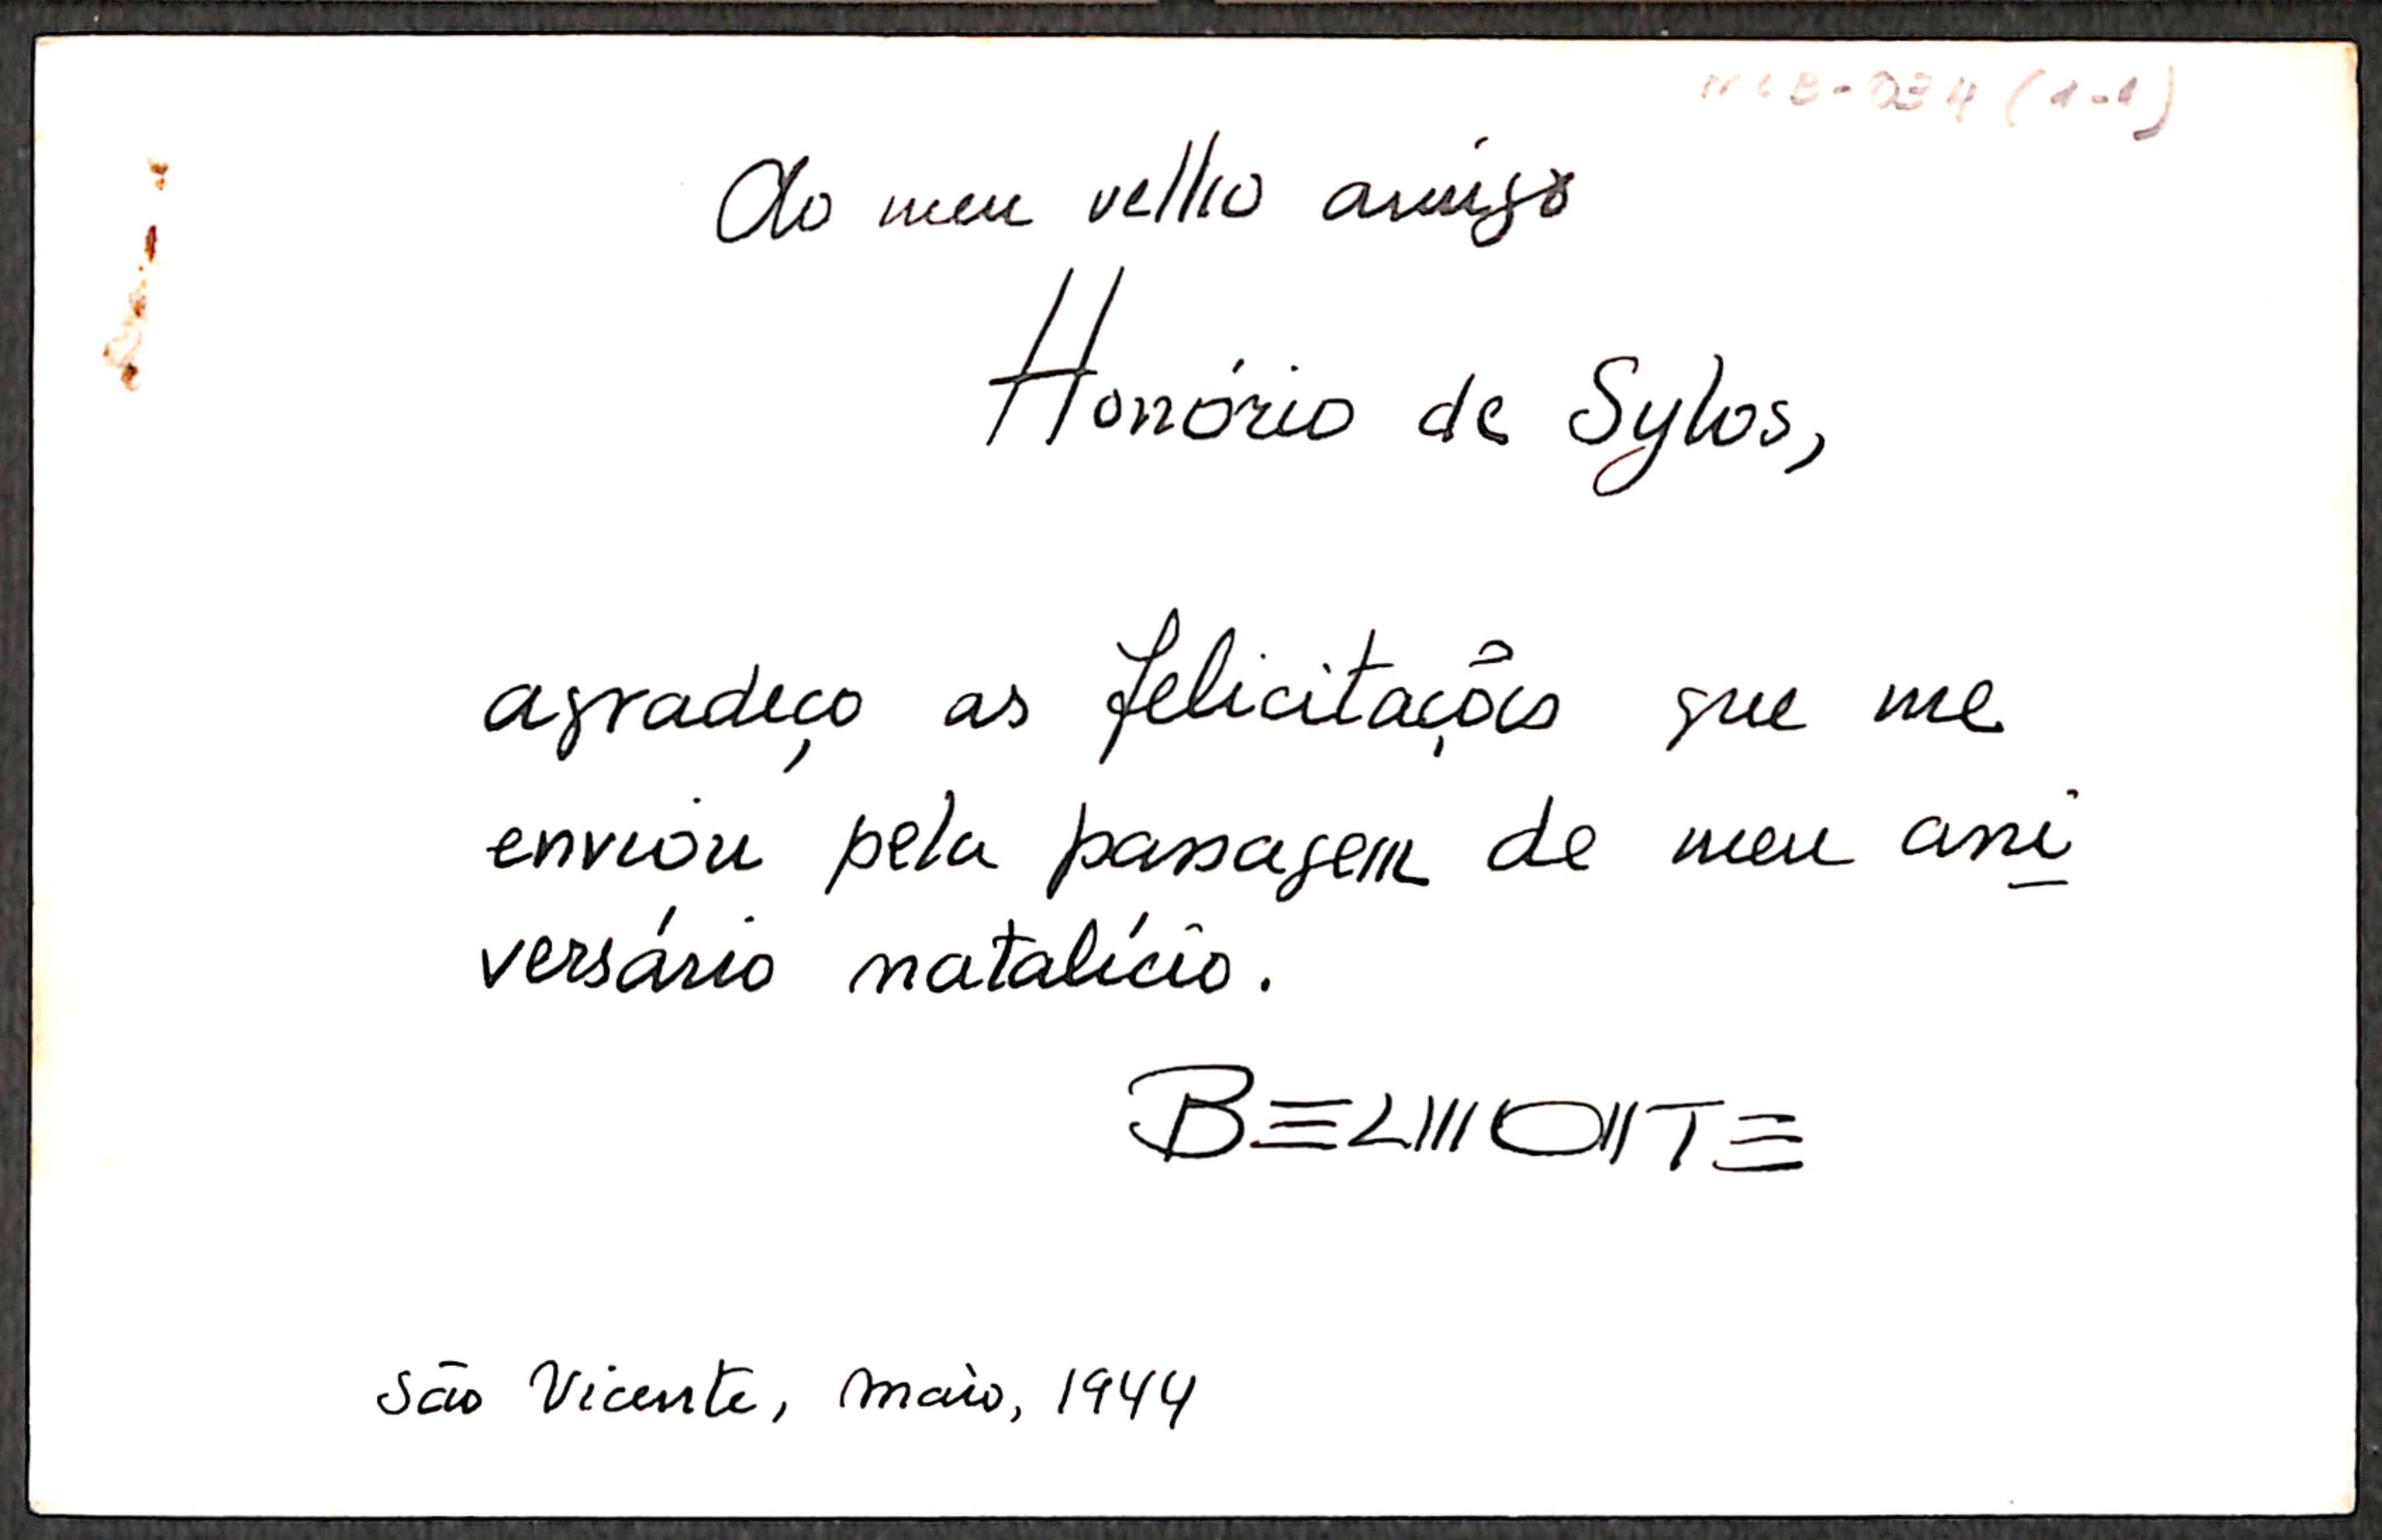 Ao meu velho amigo
Honório de Sylos,
agradeço as felicitações que me
enviou pela passagem de meu ani
versário natalício.
BELMONTE
São Vicente, maio, 1944